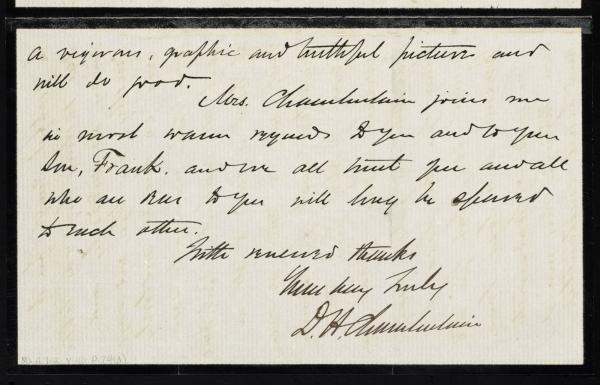 a vigorous, graphic and truthful picture and
will do good.
Mrs. Chamberlain joins me
in most warm regards to you and to your
son, Frank. and we all trust you and all
who are dear to you will long be spared
to each other.
With renewed thanks
Yours very truly
D. H. Chamberlain